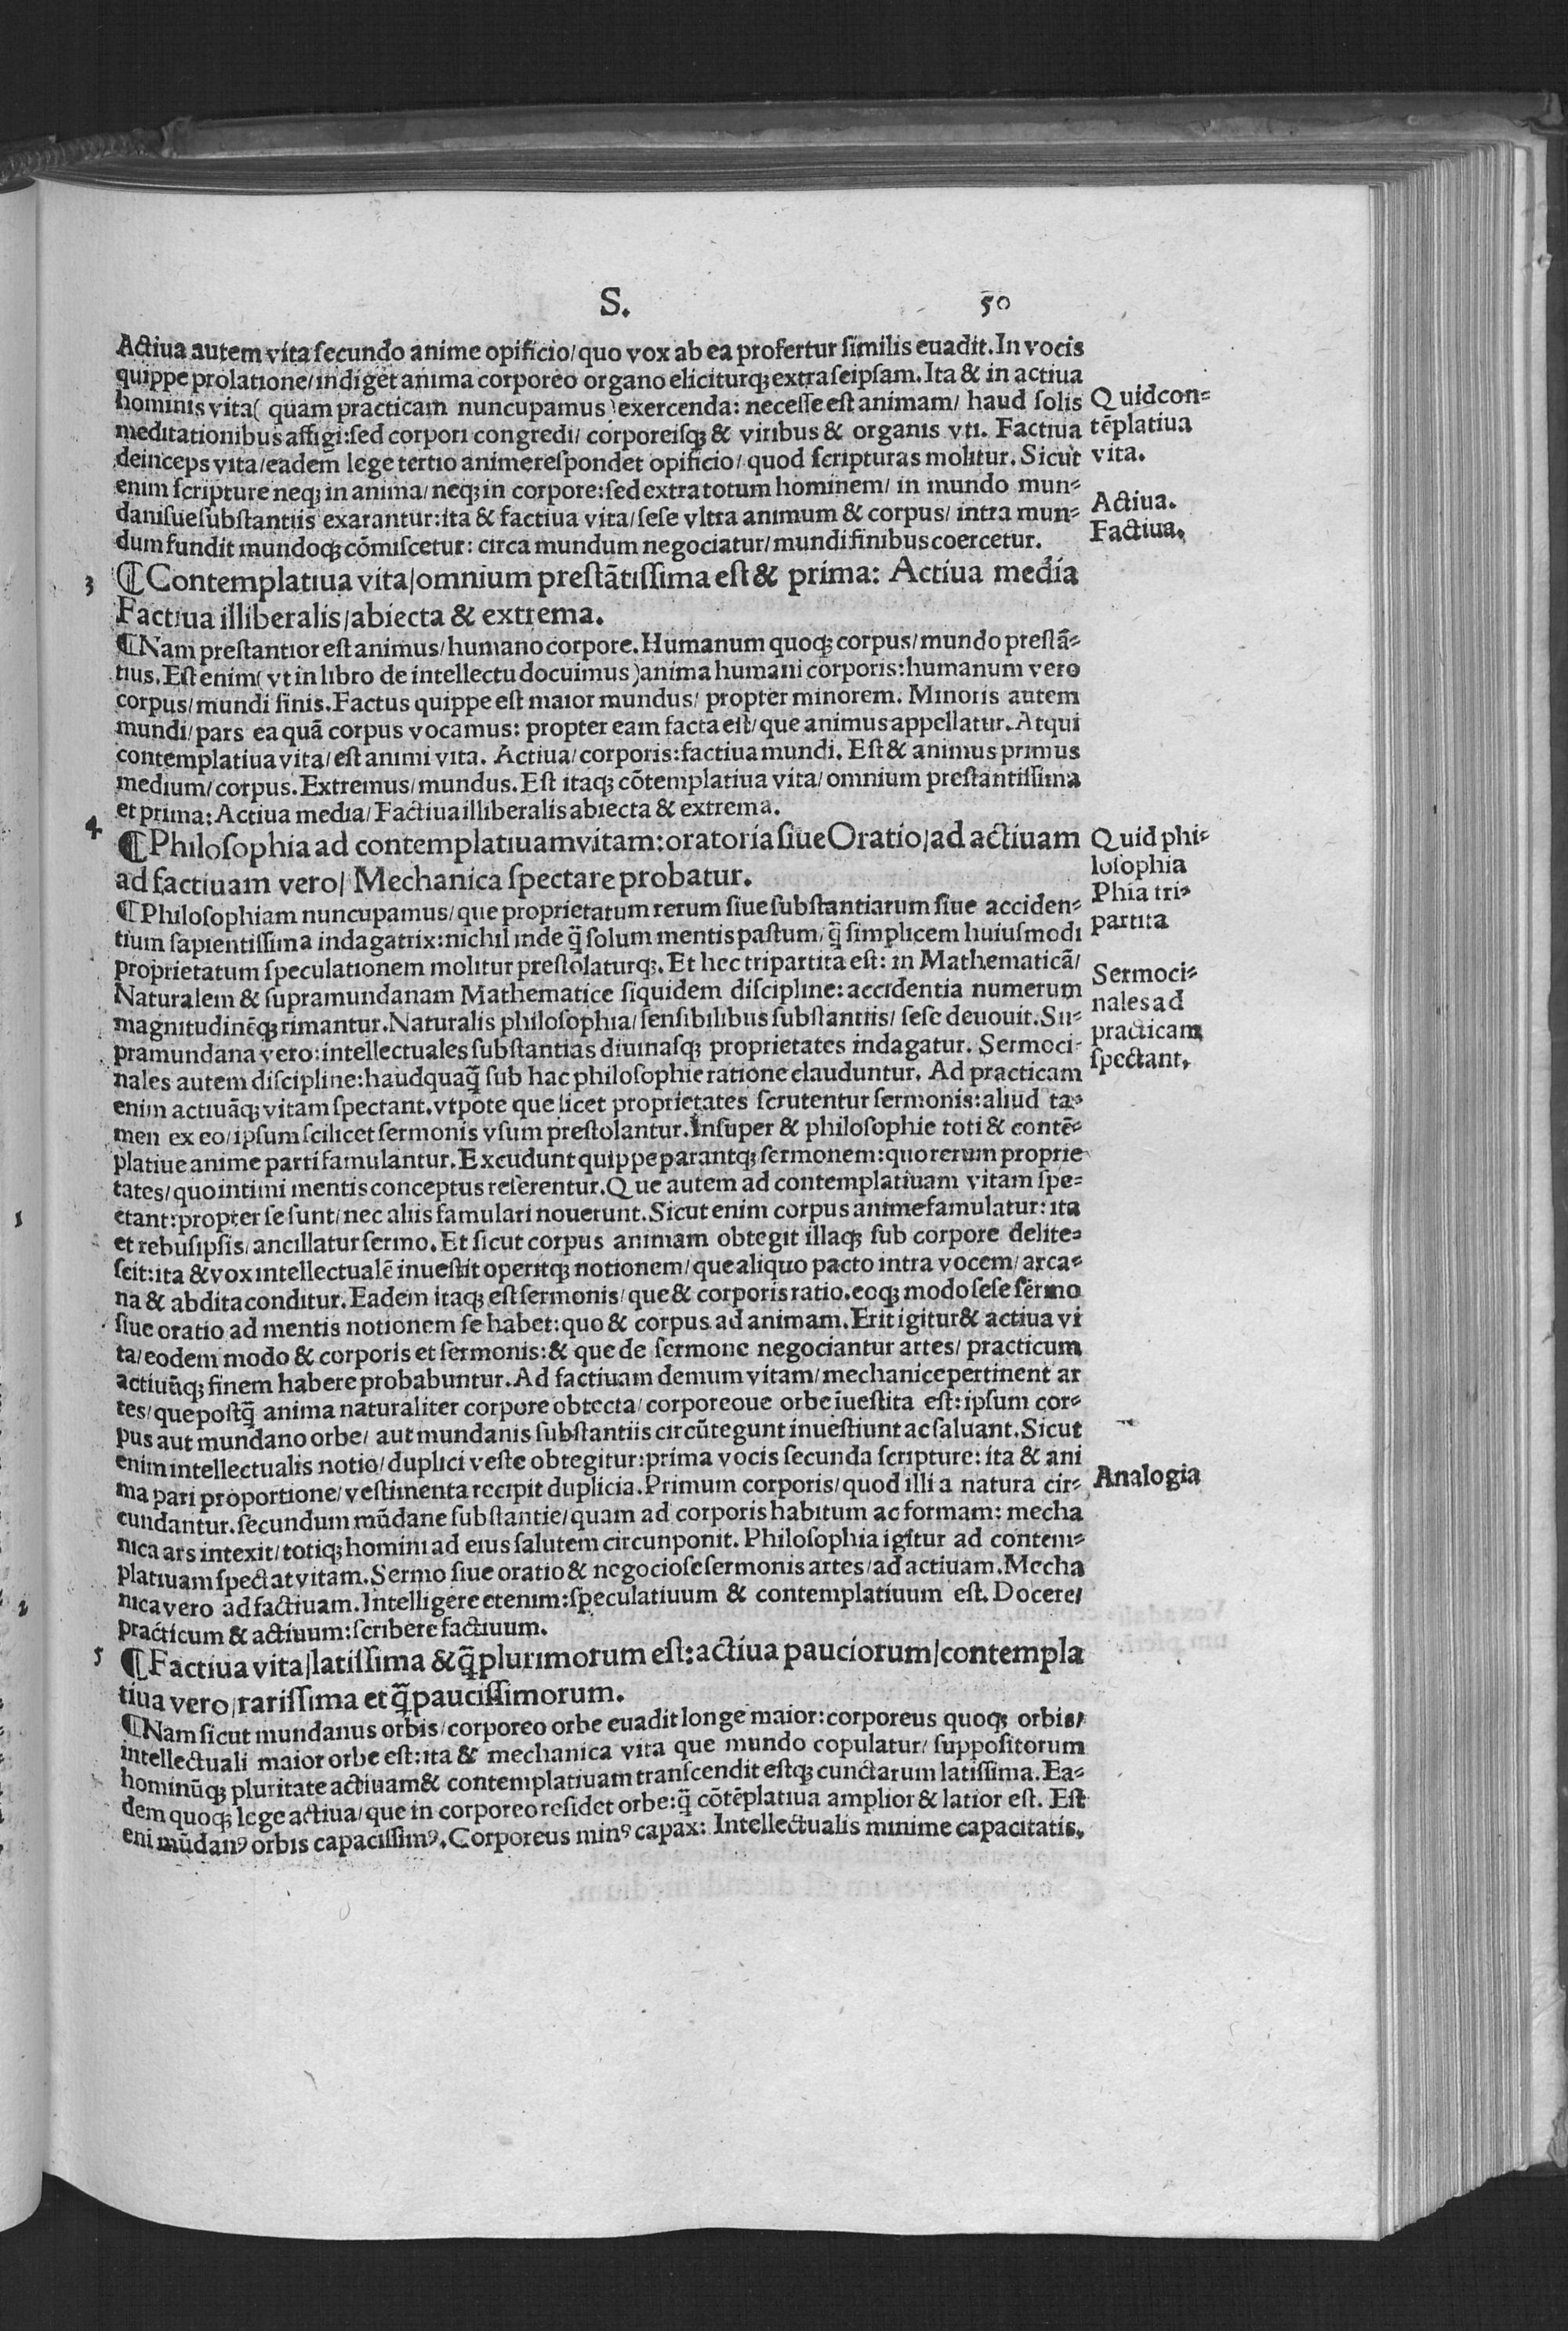 S. 50
Actiua autem vita secundo anime opificio/ quo vox ab ea profertur similis euadit. In vocis
quippe prolatione/ indiget anima corporeo organo eliciturq; extra seipsam. Ita & in actiua
hominis vita( quam practicam nuncupamus ) exercenda: necesse est animam/ haud solis
meditationibus affigi: sed corpori congredi/ corporeisq; & viribus & organis vti. Factiua
deinceps vita/ eadem lege tertio anime respondet opificio/ quod scripturas molitur. Sicut
enim scripture neq; in anima/ neq; in corpore: sed extra totum hominem/ in mundo mun=
danisue substantiis exarantur: ita & factiua vita/ sese vltra animum & corpus/ intra mun=
dum fundit mundoq; cōmiscetur: circa mundum negociatur/ mundi finibus coercetur.
Quid con=
tēplatiua
vita.
Actiua.
Factiua.
3 ¶Contemplatiua vita/ omnium prestātissima est & prima: Actiua media
Factiua illiberalis/ abiecta & extrema.
¶Nam prestantior est animus/ humano corpore. Humanum quoq; corpus/ mundo prestā=
tius. Est enim( vt in libro de intellectu docuimus ) anima humani corporis: humanum vero
corpus/ mundi finis. Factus quippe est maior mundus/ propter minorem. Minoris autem
mundi/ pars ea quā corpus vocamus: propter eam facta est/ que animus appellatur. Atqui
contemplatiua vita/ est animi vita. Actiua/ corporis: factiua mundi. Est & animus primus
medium/ corpus. Extremus/ mundus. Est itaq; cōtemplatiua vita/ omnium prestantissima
et prima: Actiua media/ Factiua illiberalis abiecta & extrema.
4 ¶Philosophia ad contemplatiuam vitam: oratoria siue Oratio/ ad actiuam
ad factiuam vero/ Mechanica spectare probatur.
¶Philosophiam nuncupamus/ que proprietatum rerum siue substantiarum siue acciden=
tium sapientissima indagatrix: nichil inde q̄ solum mentis pastum/ q̄ simplicem huiusmodi
proprietatum speculationem molitur prestolaturq;. Et hec tripartita est: in Mathematicā/
Naturalem & supramundanam Mathematice siquidem discipline: accidentia numerum
magnitudinēq; rimantur. Naturalis philosophia/ sensibilibus substantiis/ sese deuouit. Su=
pramundana vero: intellectuales substantias diuinasq; proprietates indagatur. Sermoci=
nales autem discipline: haudquaq̄ sub hac philosophie ratione clauduntur. Ad practicam
enim actiuāq; vitam spectant. vtpote que licet proprietates scrutentur sermonis: aliud ta=
men ex eo/ ipsum scilicet sermonis vsum prestolantur. Insuper & philosophie toti & contē=
platiue anime parti famulantur. Excudunt quippe parantq; sermonem: quo rerum proprie
tates/ quo intimi mentis conceptus reserentur. Que autem ad contemplatiuam vitam spe=
ctant: propter se sunt/ nec aliis famulari nouerunt. Sicut enim corpus anime famulatur: ita
et rebus ipsis/ ancillatur sermo. Et sicut corpus animam obtegit illaq; sub corpore delite=
scit: ita & vox intellectualē inuestit operitq; notionem/ que aliquo pacto intra vocem/ arca=
na & abdita conditur. Eadem itaq; est sermonis/ que & corporis ratio. eoq; modo sese sermo
siue oratio ad mentis notionem se habet: quo & corpus ad animam. Erit igitur & actiua vi
ta/ eodem modo & corporis et sermonis: & que de sermone negociantur artes/ practicum
actiuūq; finem habere probabuntur. Ad factiuam demum vitam/ mechanice pertinent ar
tes/ que postq̄ anima naturaliter corpore obtecta/ corporeoue orbe īuestita est: ipsum cor=
pus aut mundano orbe/ aut mundanis substantiis circūtegunt inuestiunt ac saluant. Sicut
enim intellectualis notio/ duplici veste obtegitur: prima vocis secunda scripture: ita & ani
ma pari proportione/ vestimenta recipit duplicia. Primum corporis/ quod illi a natura cir=
cundantur. secundum mūdane substantie/ quam ad corporis habitum ac formam: mecha
nica ars intexit/ totiq; homini ad eius salutem circunponit. Philosophia igitur ad contem=
platiuam spectat vitam. Sermo siue oratio & negociose sermonis artes/ ad actiuam. Mecha
nica vero ad factiuam. Intelligere etenim: speculatiuum & contemplatiuum est. Docere/
practicum & actiuum: scribere factiuum.
Quid phi=
losophia
Phia tri=
partita
Sermoci=
nales ad
practicam
spectant.
Analogia
5 ¶Factiua vita/ latissima & q̄ plurimorum est: actiua pauciorum/ contempla
tiua vero/ rarissima et q̄ paucissimorum.
¶Nam sicut mundanus orbis/ corporeo orbe euadit longe maior: corporeus quoq; orbis/
intellectuali maior orbe est: ita & mechanica vita que mundo copulatur/ suppositorum
hominūq; pluritate actiuam & contemplatiuam transcendit estq; cunctarum latissima. Ea=
dem quoq; lege actiua/ que in corporeo residet orbe: q̄ cōtēplatiua amplior & latior est. Est
eni mūdanꝰ orbis capacissimꝰ. Corporeus minꝰ capax: Intellectualis minime capacitatis.